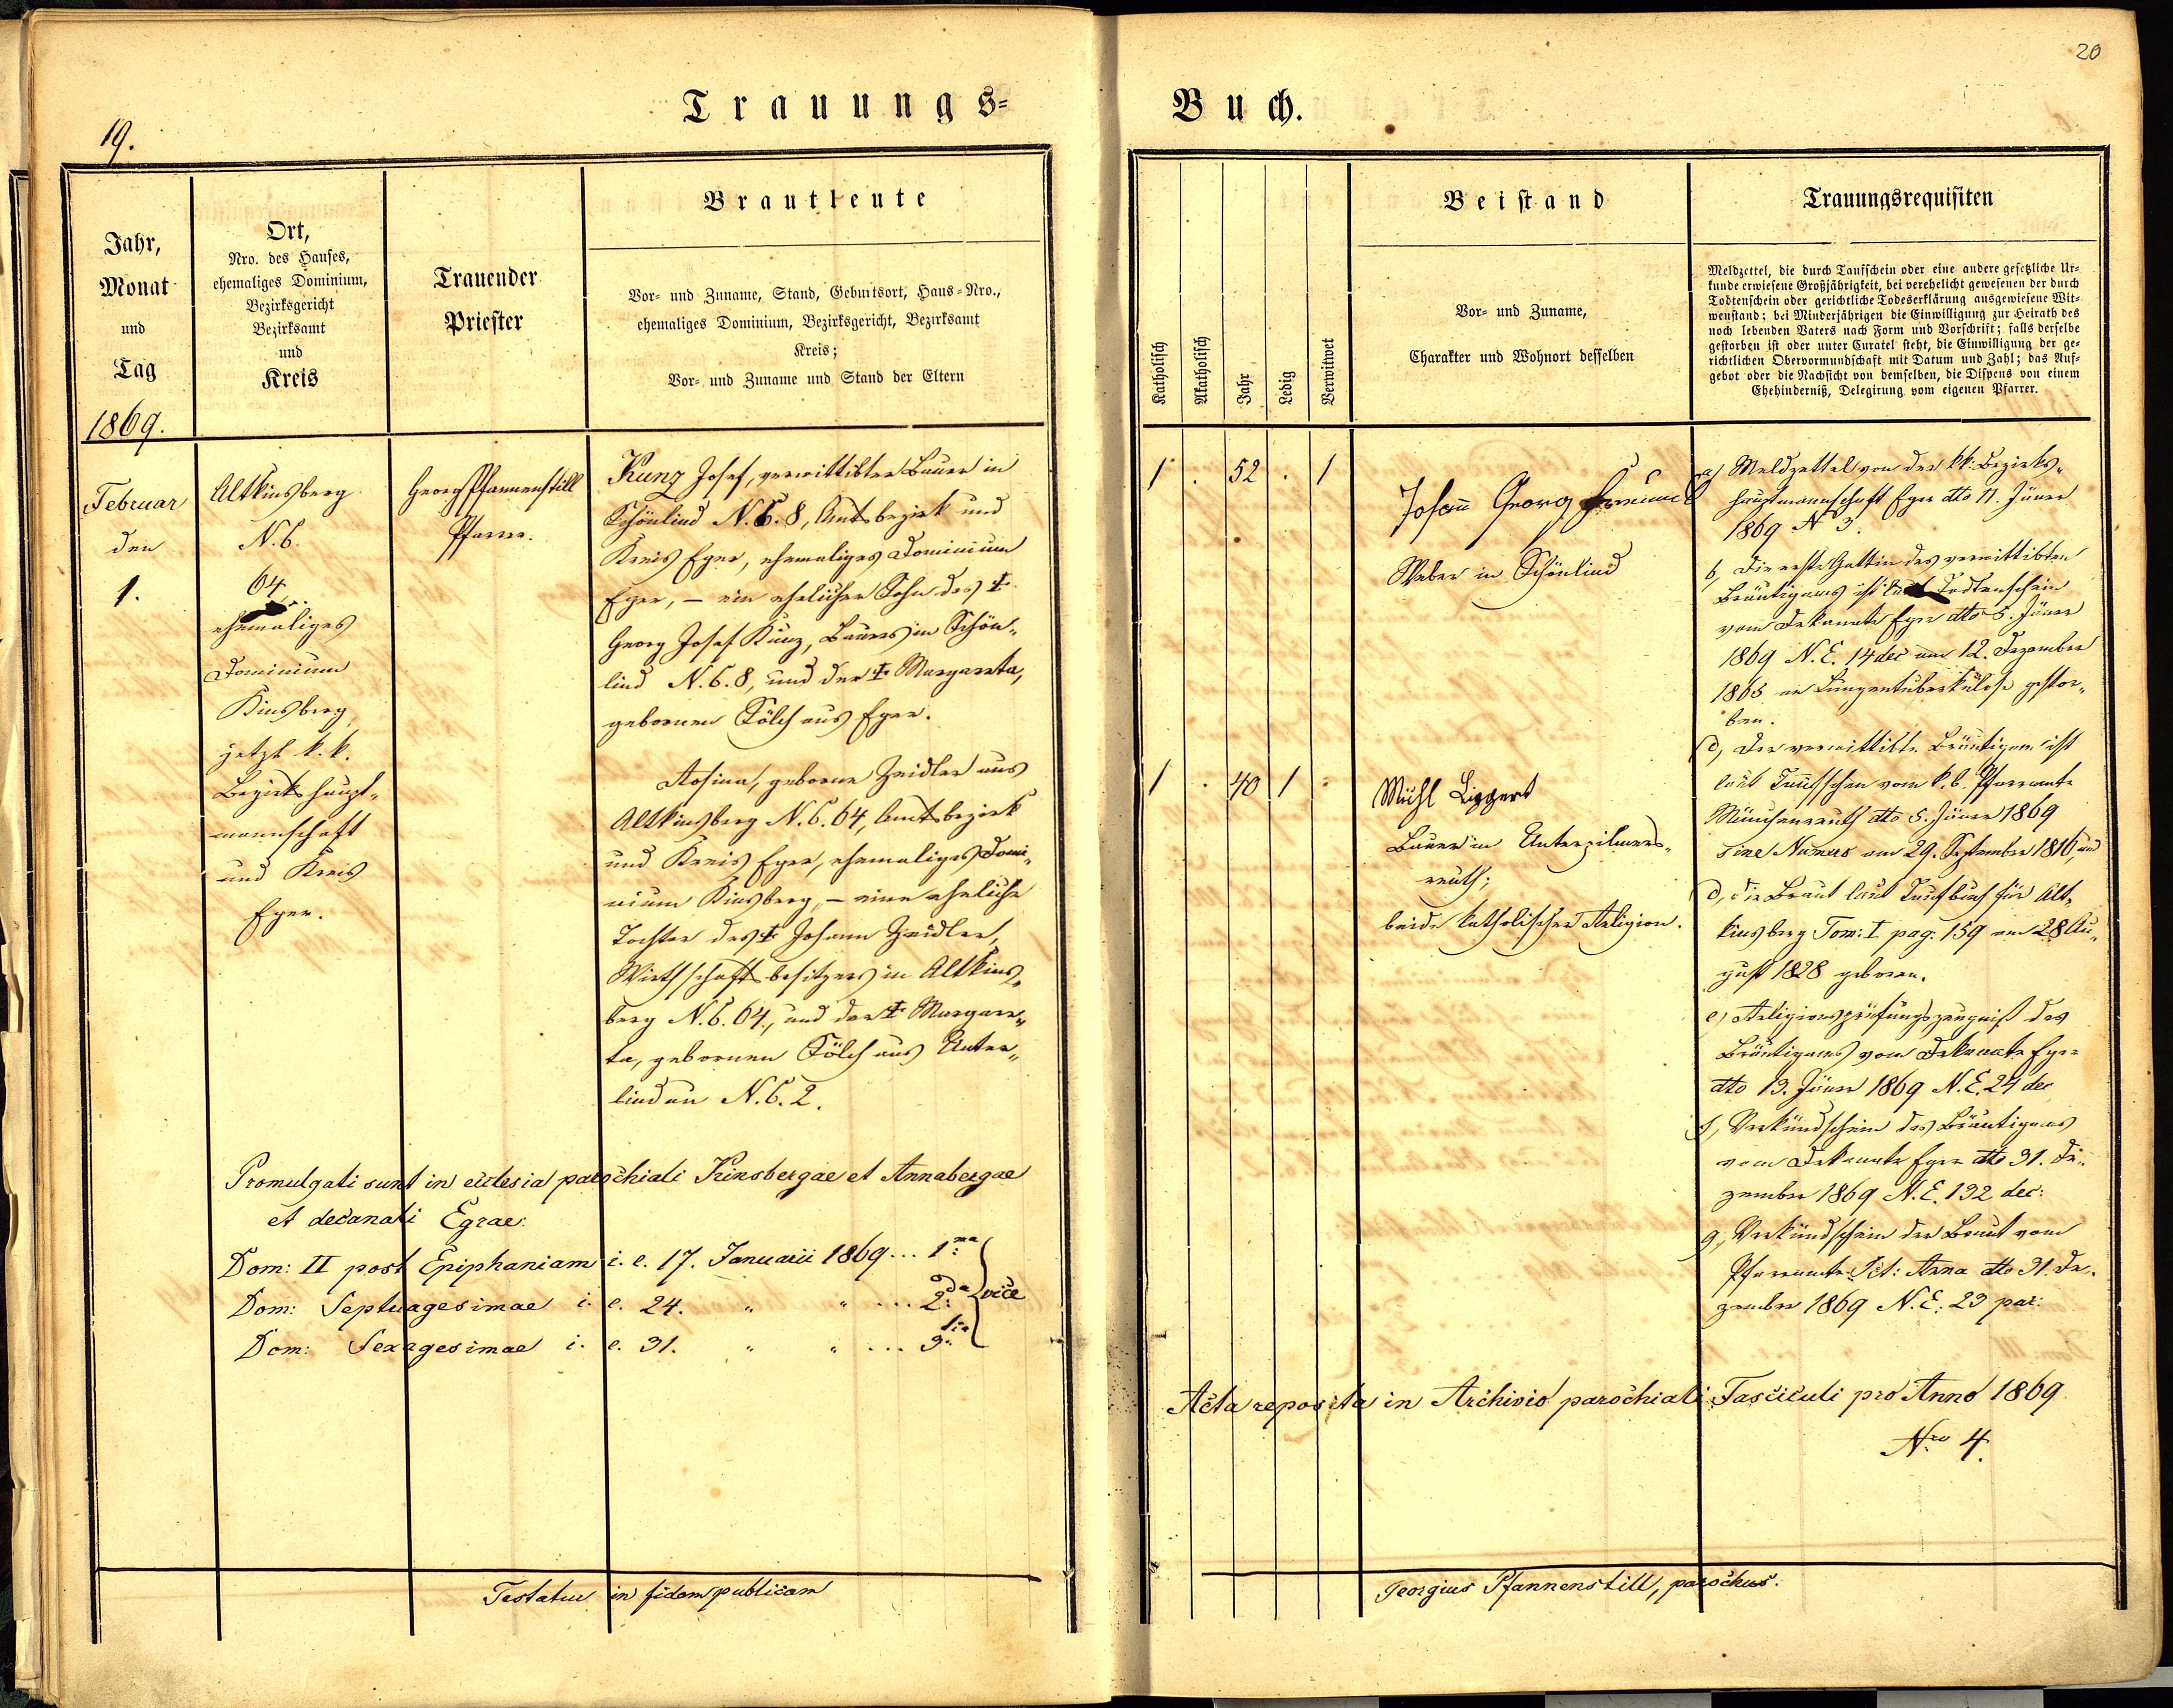 20
Trauungs-
Buch.
19.
Jahr,
Monat
und
Tag
1869.
Ort,
Nro. des Hauses,
ehemaliges Dominium,
Bezirksgericht
Bezirksamt
und
Kreis
Trauender
Priester
Brautleute
Vor- und Zuname, Stand, Geburtsort, Haus-Nro.,
ehemaliges Dominium, Bezirksgericht, Bezirksamt
Kreis;
Vor- und Zuname und Stand der Eltern
Februar
den
1.
Altkinsberg
N.C.
64.
ehemaliges
Dominium
Kinsberg
jetzt k.k.
Bezirkshaupt-
mannschaft
und Kreis
Eger.
Georg Pfannenstill
Pfarrer.
Kunz Josef, verwittibter Bauer in
Schönlind N.C. 8, Amtsbezirk und
Kreis Eger, ehemaliges Dominium
Eger, – ein ehelicher Sohn des †
Georg Josef Kunz, Bauers in Schön-
lind N.C. 8, und der † Margareta,
gebornen Tölch aus Eger.
Rosina, geborne Zeidler aus
Altkinsberg N.C. 64, Amtsbezirk
und Kreis Eger, ehemaliges Domi-
nium Kinsberg, – eine eheliche
Tochter des † Johann Zeidler,
Wirthschaftsbesitzers in Altkins-
berg N.C. 64., und der † Margare-
ta, gebornen Tölch aus Unter-
lindau N.C. 2.
Promulgati sunt in ecclesia parochiali Kinsbergae et Annabergae
et decanali Egrae:
Dom: II post Epiphaniam i. e. 17. Januarii 1869 ... 1ma
Dom: Septuagesimae i. e. 24. " " ... 2da vice
Dom: Sexagesimae i. e. 31. " " ... 3tia
Testatur in fidem publicam
Katholisch
Akatholisch
Jahr
Ledig
Verwitwet
Beistand
Vor- und Zuname,
Charakter und Wohnort desselben
Trauungsrequisiten
Meldzettel, die durch Taufschein oder eine andere gesetzliche Ur-
kunde erwiesene Großjährigkeit, bei verehelicht gewesenen der durch
Todtenschein oder gerichtliche Todeserklärung ausgewiesene Wit-
wenstand; bei Minderjährigen die Einwilligung zur Heirath des
noch lebenden Vaters nach Form und Vorschrift; falls derselbe
gestorben ist oder unter Curatel steht, die Einwilligung der ge-
richtlichen Obervormundschaft mit Datum und Zahl; das Auf-
gebot oder die Nachsicht von demselben, die Dispens von einem
Ehehinderniß, Delegirung vom eigenen Pfarrer.
1 . 52 . 1
Johann Georg
Weber in Schönlind
1 . 40 1 .
Michl Lippert
Bauer in Unterpilmers-
reuth;
beide katholischer Religion.
a) Meldzettel von der kk. Bezirks-
hauptmannschaft Eger dto 11. Jäner
1869 N 3.
b, Die erste Gattin des verwittibten
Bräutigams ist laut Todtenschein
vom Dekanate Eger dto 5. Jäner
1869 N.E. 14 dec am 12. Dezember
1865 an Lungentuberkulose gestor-
ben.
c, Der verwittibte Bräutigam ist
laut Taufschein vom k.b. Pfarramte
Münchenreuth dto 5. Jäner 1869
sine Numero am 29. September 1816, und
d, die Braut laut Taufbuch für Alt-
kinsberg Tom: I pag. 159 am 28 Au-
gust 1828 geboren.
e, Religionsprüfungszeugniß des
Bräutigams vom Dekanate Eger
dto 13. Jäner 1869 N.E. 24 dec
f, Verkündschein des Bräutigams
vom Dekanate Eger dto 31. De-
zember 1869 N.E. 132 dec:
g, Verkündschein der Braut vom
Pfarramte Sct: Anna dto 31. De-
zember 1869 N.E. 23 par:
Acta reposita in Archivio parochiali Fasciculi pro Anno 1869
Nro 4.
Georgius Pfannenstill, parochus.